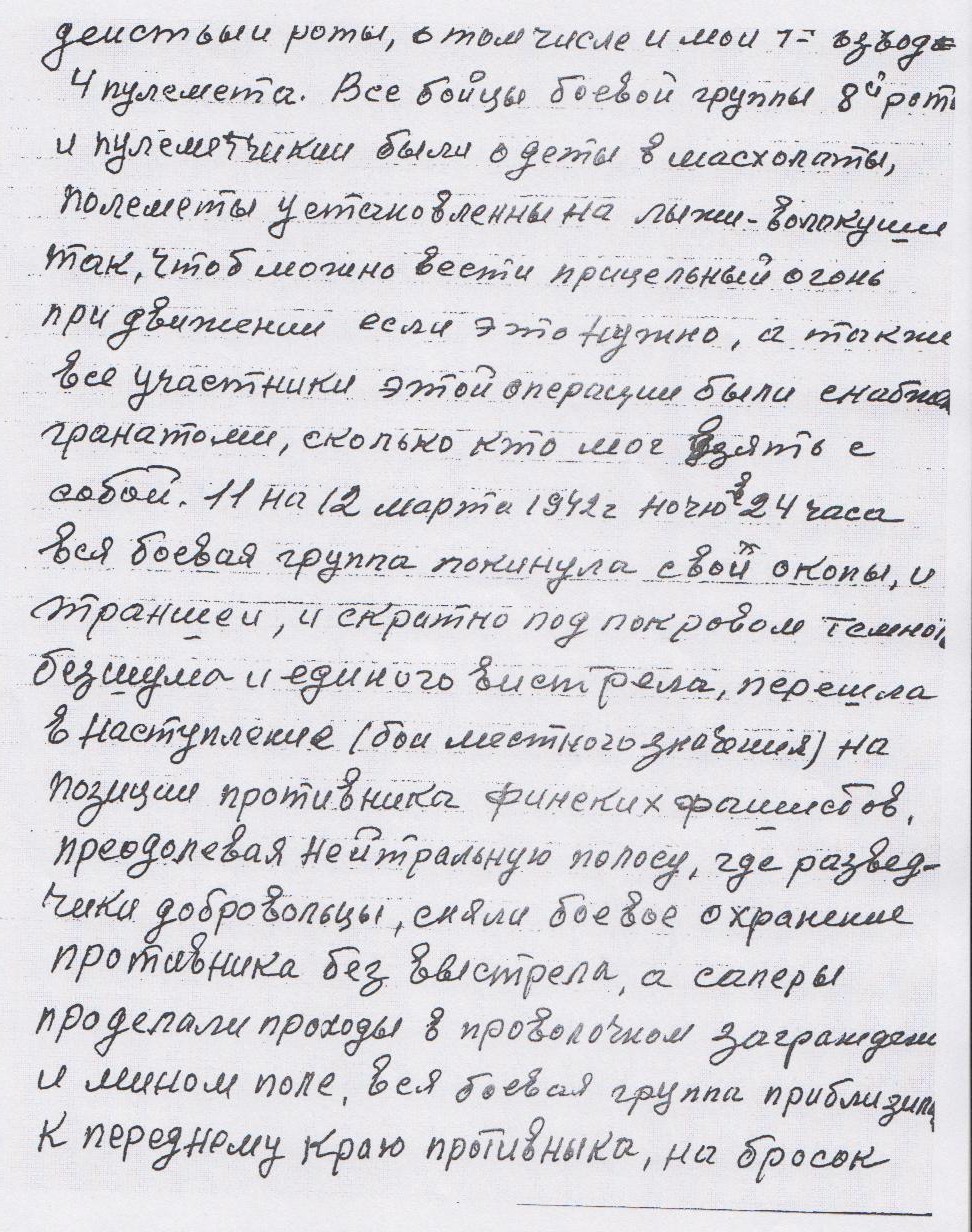 действии роты, в том числе и мой 1й взвод
4 пулемета. Все бойцы боевой группы 8й рот
и пулеметчикии были одеты в масхолаты,
полеметы установленны на лыжи-волокуши
так, чтоб можно вести прицельный огонь
при движении если это нужно, а также
все участники этой операции были снабжен
гранатоми, сколько кто мог взять с
собой. 11 на 12 марта 1942г ночю в 24 часа
вся боевая группа покинула свой окопы, и
траншеи, и скрытно под покровом темнот
безшума и единого выстрела, перешла
в наступление (бои местного значения) на
позиции противника финских фашистов,
преодолевая нейтральную полосу, где развед-
чики добровольцы, сняли боевое охранение
противника без выстрела, а саперы
проделали проходы в проволочном заграждени
и мином поле, вся боевая группа приблизил
к переднему краю противныка, на бросок